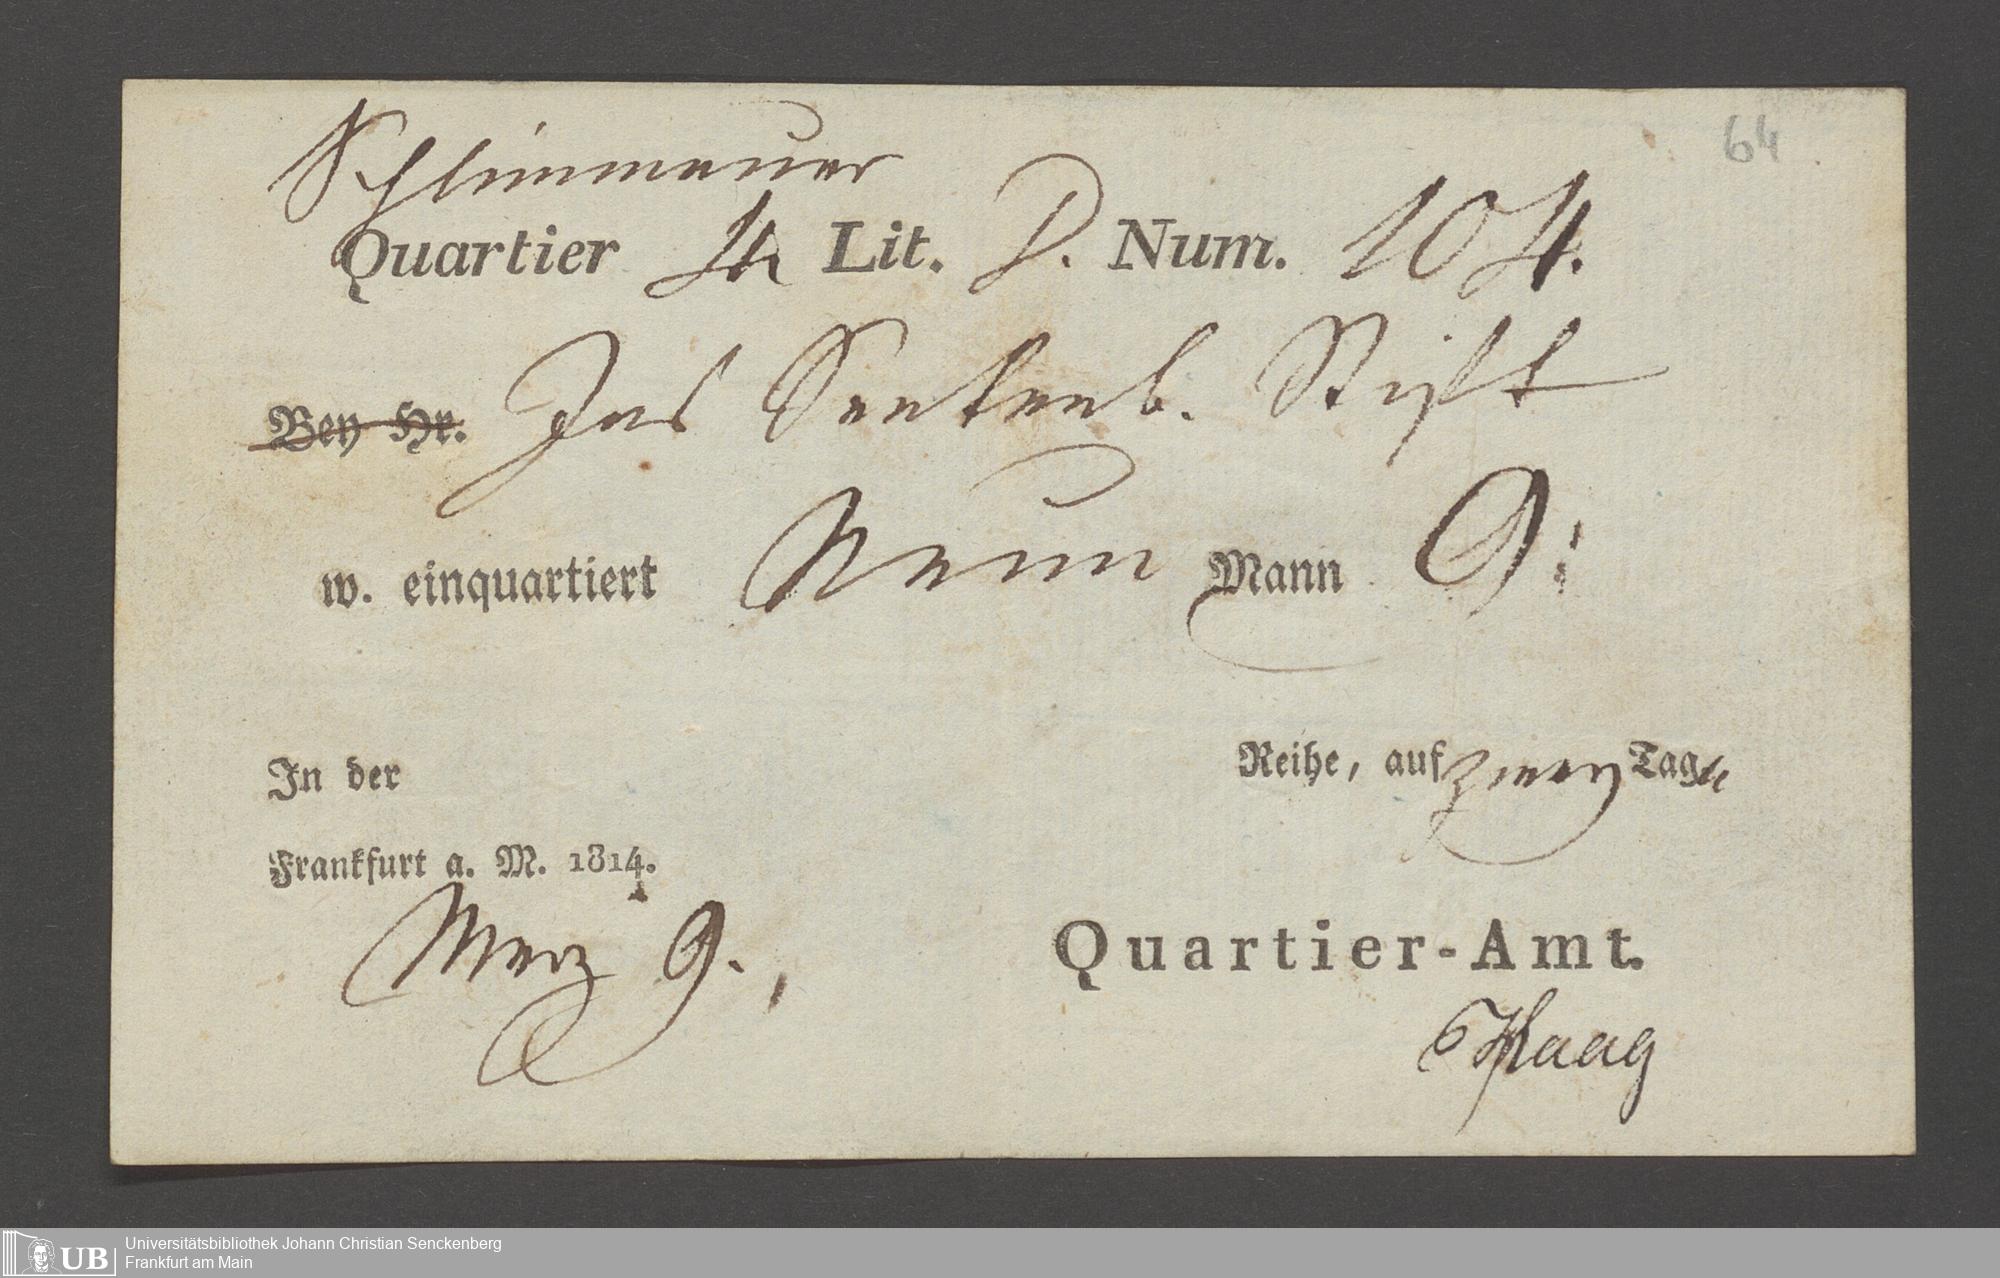 64
Schlimmauer
Quartier 4r Lit. D. Num. 104.
Bey Hr. Das Senkenb. Stift
w. einquartiert Neun Mann 9.
In der Reihe, auf zwey Tage
Frankfurt a. M. 1814.
Merz 9.
Quartier-Amt.
Haag
UB Universitätsbibliothek Johann Christian Senckenberg
Frankfurt am Main